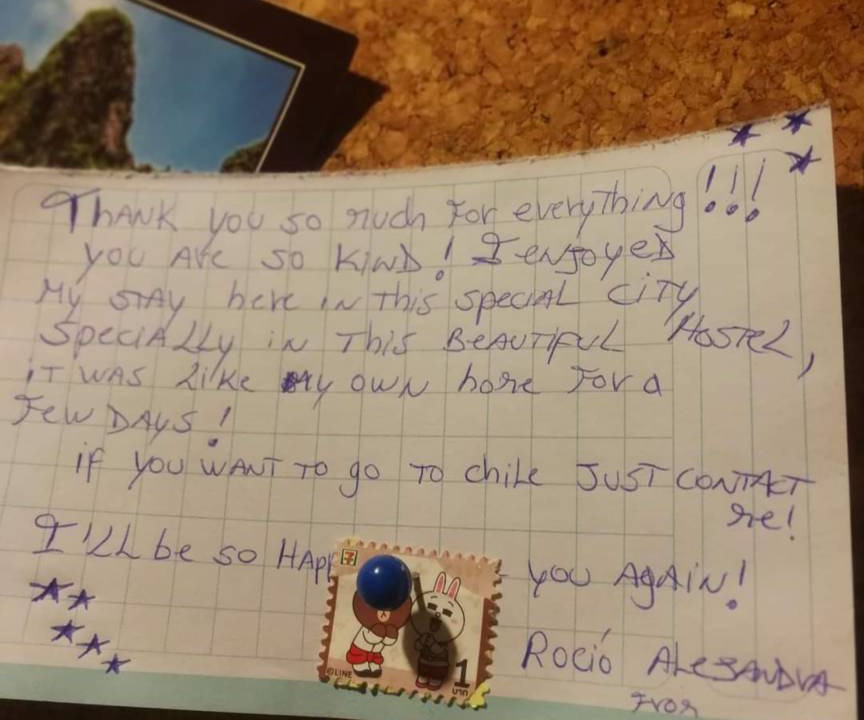 THANK YOU SO much For everything!!!
YOU Are SO KIND! I enjoyED
My STAY here IN this SPECIAL CITY,
SPECIALLy iN THIS BEAUTIFUL HOSTEL,
IT WAS LIKE My OWN home For a
Few DAyS!
iF YOU WANT TO go TO Chile JUST CONTACT
me!
I'LL be so HAPP YOU AGAIN!
Rocío ALEJANDRA
From
7
©LINE
1
บาท